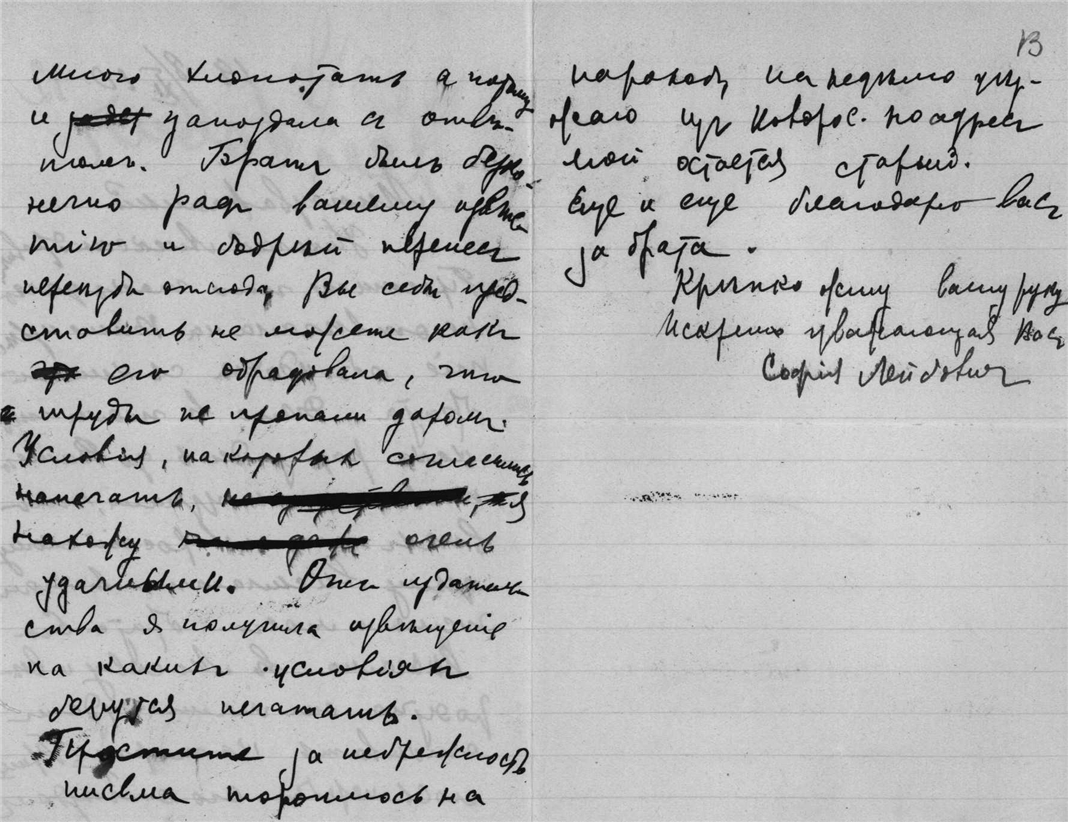 много хлопотать а потому
и запоздала съ отвѣ-
томъ. Братъ былъ безко-
нечно радъ вашему извѣс
тію и бодрый перенесъ
переѣздъ отсюда, Вы себѣ пред-
ставить не можете какъ
его обрадовала, что
труды не пропали даромъ.
Условія, на которыхъ согласились
напечатать, я
нахожу очень
удачными. Отъ издатель
ства я получила извѣщеніе
на какихъ условіяхъ
берутся печатать.
Простите за небрежность
письма тороплюсь на
13
пароходъ, на недѣлю уѣз-
жаю изъ Новорос. но адресъ
мой остается старый.
Еще и еще благодарю васъ
за брата.
Крѣпко жму вашу руку
Искренно уважающая Васъ
Софія Лейбовичъ